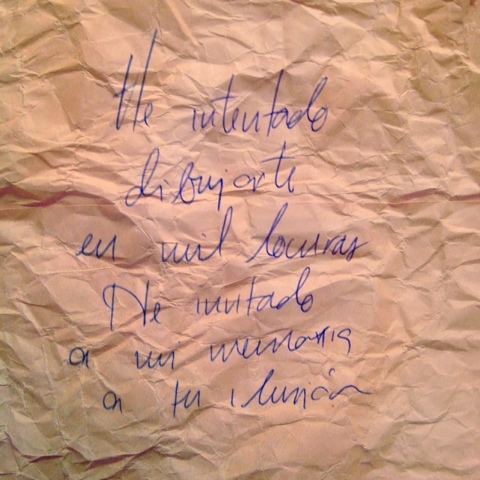 He intentado
dibujarte
en mil locuras
He invitado
a mi memoria
a tu ilusión